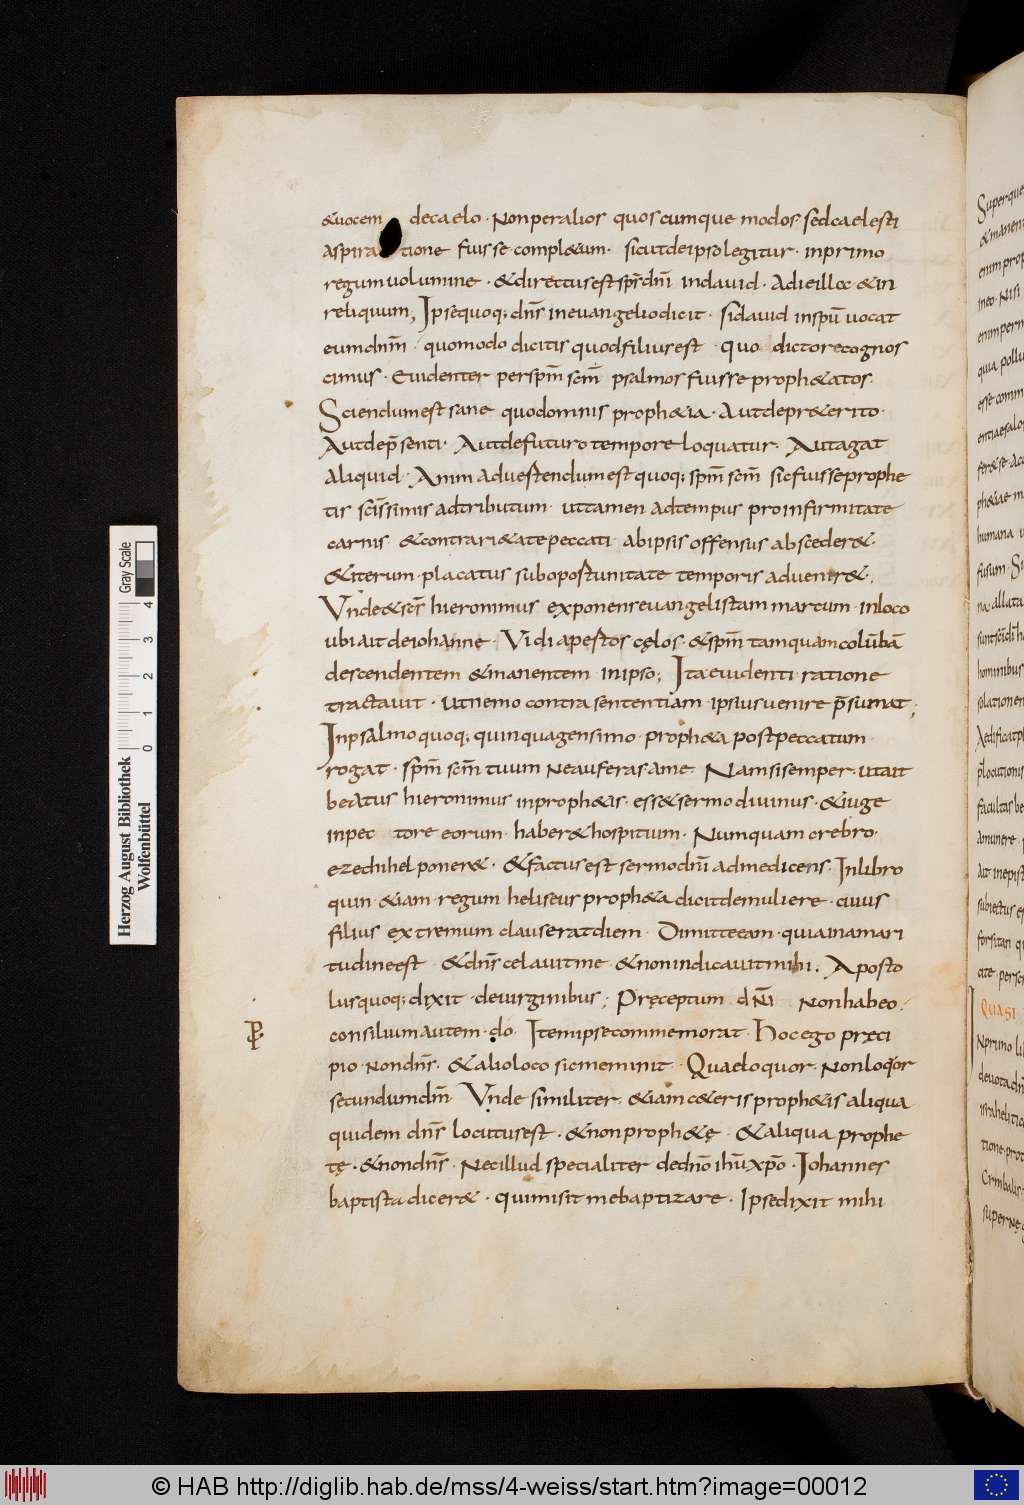 &uocem de caelo · Non per alios quoscumque modos · sed caelesti
aspiratione fuisse compl&um · sicut de ipso legitur · in primo
regum uolumine · & directus est spr̄ dn̄i in dauid · A die illa & in
reliquum, Ipse quoq; dn̄s in euangelio dicit · si dauid in spū uocat
eum dn̄m · quomodo dicitis quod filius est quo dicto recognos
cimus · Euidenter per spm̄ scm̄ psalmos fuisse proph&atos ·
Sciendum est sane quod omnis proph&ia · Aut de pr&erito ·
Aut de p̄senti · Aut de futuro tempore loquatur · Aut agat
aliquid · Animaduertendum est quoq; spm̄ scm̄ sic fuisse prophe
tis scīssimis adtributum · ut tamen ad tempus pro infirmitate
carnis & contrari&ate peccati · ab ipsis offensus absceder& ·
& iterum placatus sub oportunitate temporis aduenir& ;
Vnde & scs̄ hieronimus exponens euangelistam marcum · in loco
ubi ait de iohanne · Vidi apertos cęlos · & spm̄ tamquam colūbā
descendentem & manentem in ipso; Ita euidenti ratione
tractauit · ut nemo contra sententiam ipsius uenire p̄sumat ;
In psalmo quoq; quinquagensimo · proph&a post peccatum
rogat · spm̄ scm̄ tuum ne auferas a me Nam si semper · ut ait
beatus hieronimus in proph&is · ess& sermo diuinus · & iuge
in pec tore eorum haber& hospitium · Numquam crebro ·
ezechihel poner& · & factus est sermo dn̄i ad me dicens · In libro
quin &iam regum heliseus proph&a dicit de muliere · cuius
filius extremum clauserat diem · Dimitte eam · quia in amari
tudine est & dn̄s celauit me & non indicauit mihi . Aposto
lus quoq; dixit de uirginibus ; Pręceptum dn̄i Non habeo ·
consilium autem · do · Item ipse commemorat · Hoc ego pręci
pio · Non dn̄s · & alio loco sic meminit · Quae loquor Non loqor
secundum dn̄m Vnde similiter · &iam c&eris proph&is aliqua
quidem dn̄s locutus est · & non proph&ę & aliqua prophe
tę · & non dn̄s · Nec illud specialiter de dn̄o ihū xp̄o · Iohannes
baptista dicer& · qui misit me baptizare · Ipse dixit mihi
QUASI
Gray Scale
0 1 2 3 4
Herzog August Bibliothek
Wolfenbüttel
© HAB http://diglib.hab.de/mss/4-weiss/start.htm?image=00012